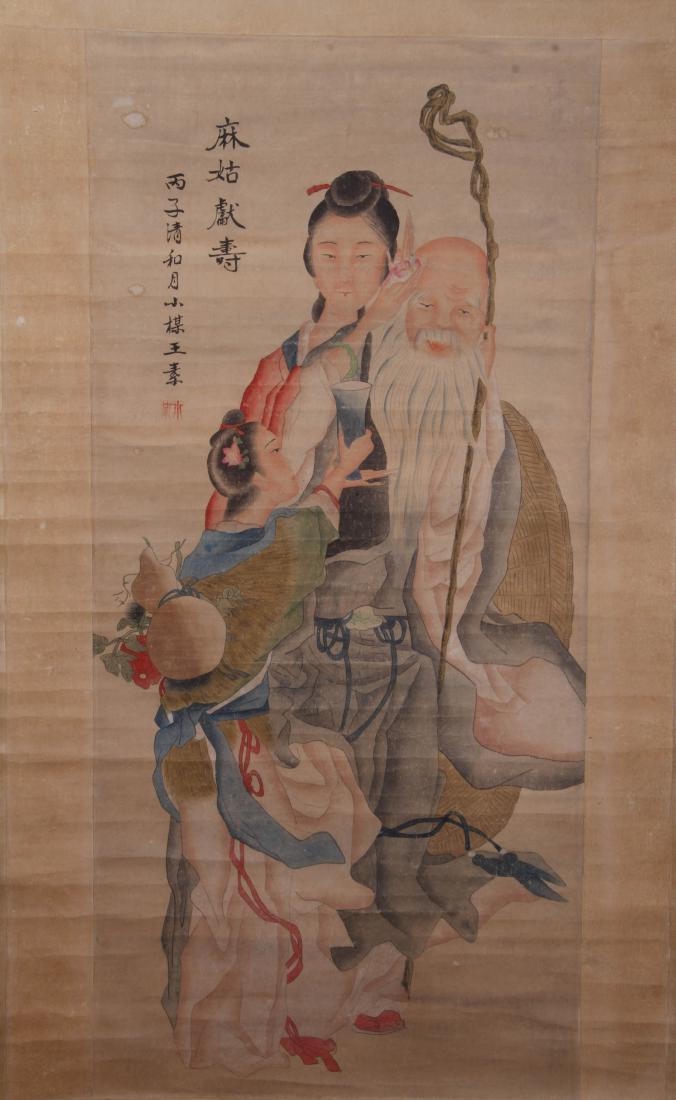 麻姑獻壽
丙子清和月小楳王素